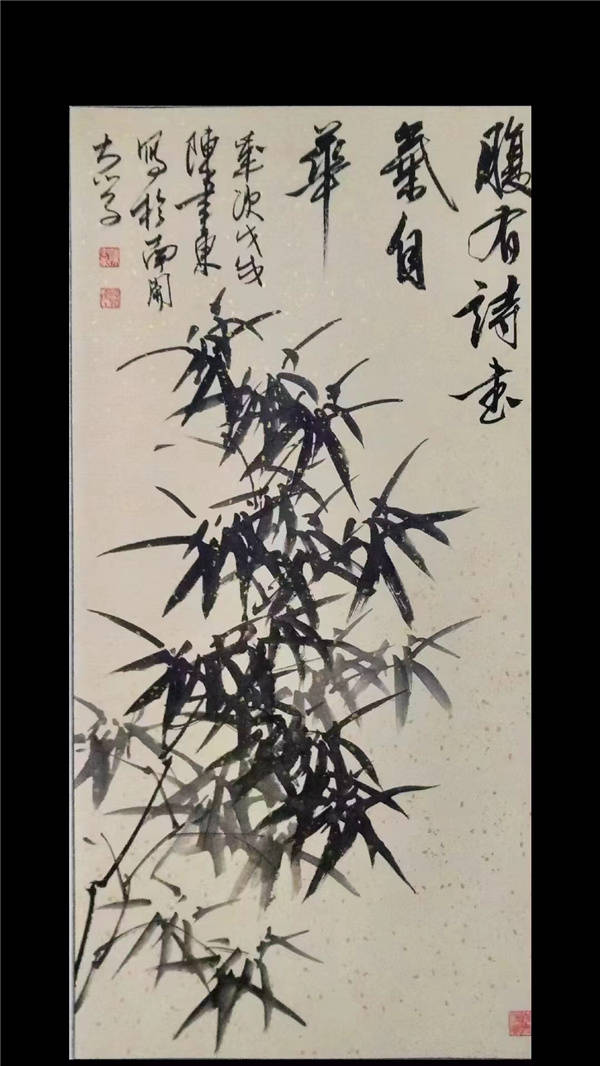 腹有詩书
氣自
華
歲次戊戌
陳聿東
寫於南開
大学